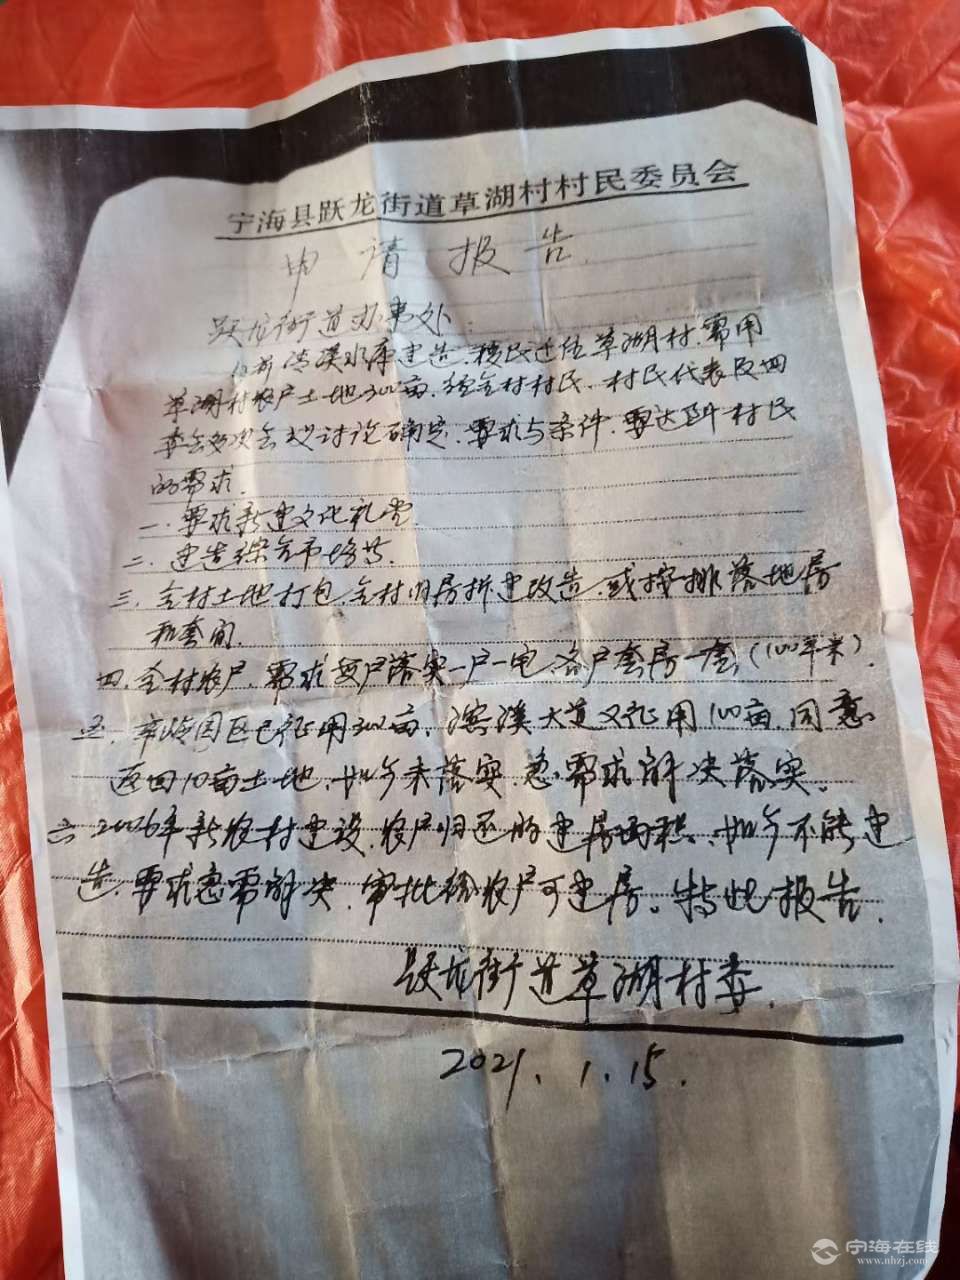 宁海县跃龙街道草湖村村民委员会
申请报告
跃龙街道办事处
溪水库建造、移民迁伍草湖村、需用
草湖村农户土地300亩、经全村村民、村民代表及四
委会多次会议讨论确定、要求与条件、要达到村民
的需求.
一、要求新建文化礼堂
二、建造综合市场
三、全村土地打包、全村旧房拆建改造、或按排落地房
和套间.
四、全村农户、需求每户落实一户一宅、各户套房一套(100平米).
五、园区已征用300亩、滨溪大道又征用100亩、同意
返回10亩土地、如今未落实、急需求解决落实。
六、2006年新农村建设、农户归还的建房面积、如今不能建
造、要求急需解决、审批给农户可建房。特此报告.
跃龙街道草湖村委.
2021.1.15.
宁海在线
www.nhzj.com